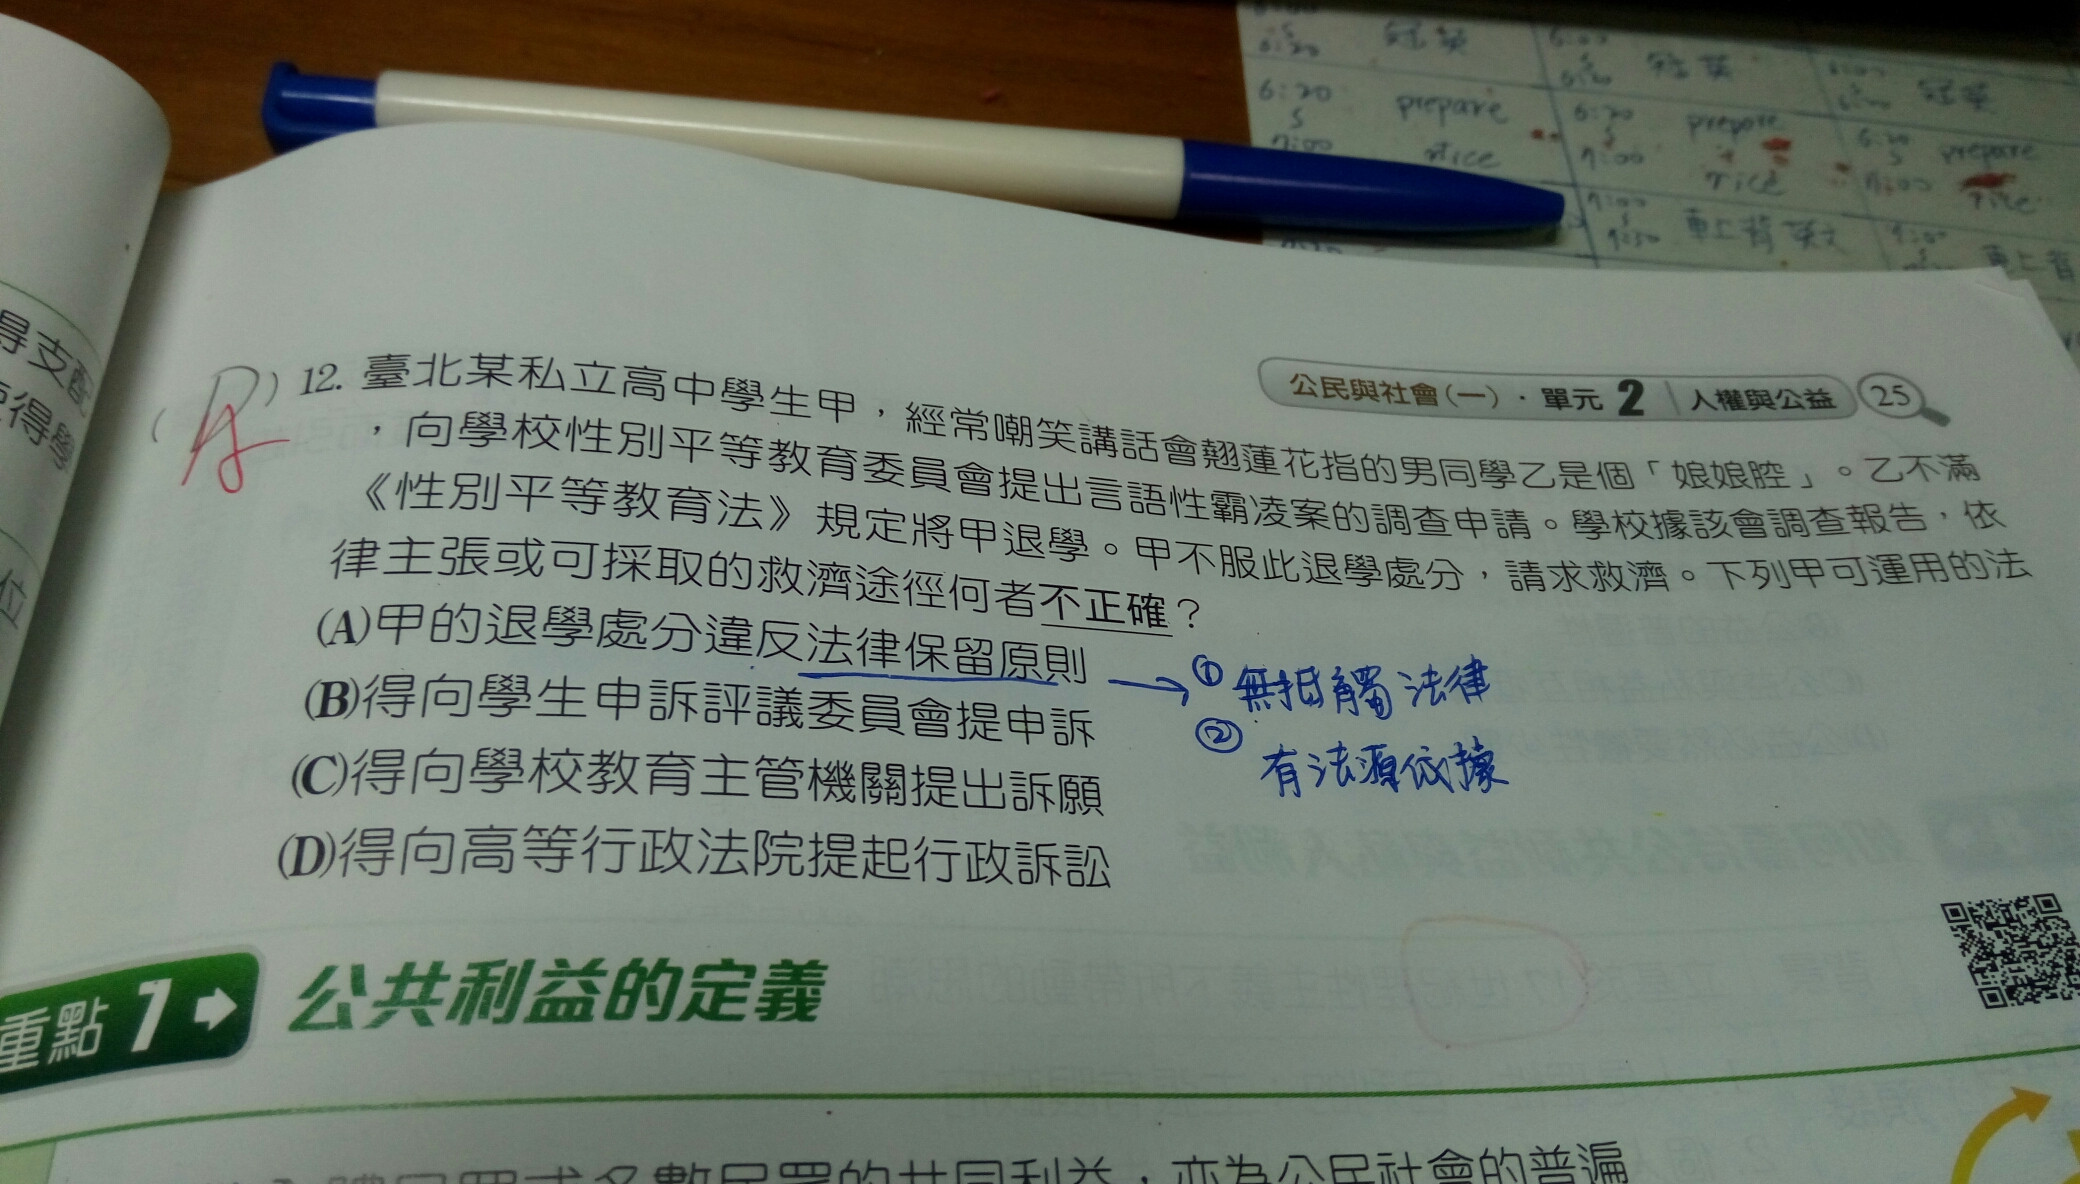 冠英
6:20 prepare
7:00 rice
6:20 prepare
7:00 rice
prepare
rice
7:00
7:50 車上背英文
車上背
公民與社會(一)．單元 2 人權與公益 25
得支配
得學
位
( A ) 12. 臺北某私立高中學生甲，經常嘲笑講話會翹蓮花指的男同學乙是個「娘娘腔」。乙不滿
，向學校性別平等教育委員會提出言語性霸凌案的調查申請。學校據該會調查報告，依
《性別平等教育法》規定將甲退學。甲不服此退學處分，請求救濟。下列甲可運用的法
律主張或可採取的救濟途徑何者不正確？
(A)甲的退學處分違反法律保留原則 → ① 無抵觸法律
② 有法源依據
(B)得向學生申訴評議委員會提申訴
(C)得向學校教育主管機關提出訴願
(D)得向高等行政法院提起行政訴訟
重點 7 公共利益的定義
的共同利益，亦為公民社會的普遍